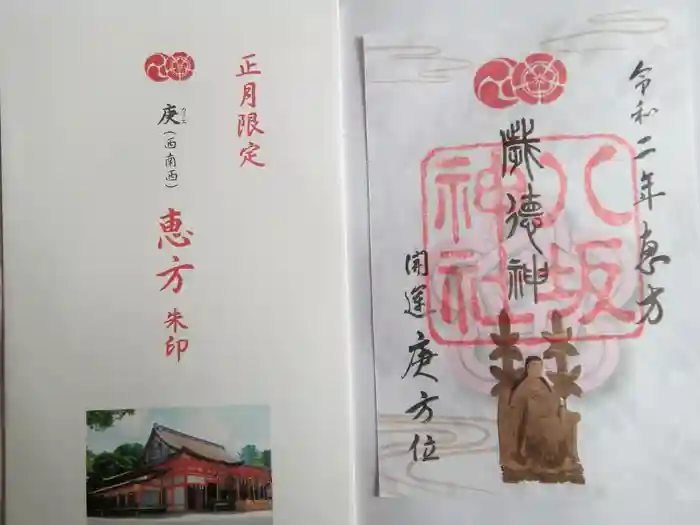 正月限定
庚(西南西)
カノエ
恵方朱印
令和二年恵方
八坂神社
歳徳神
開運庚方位